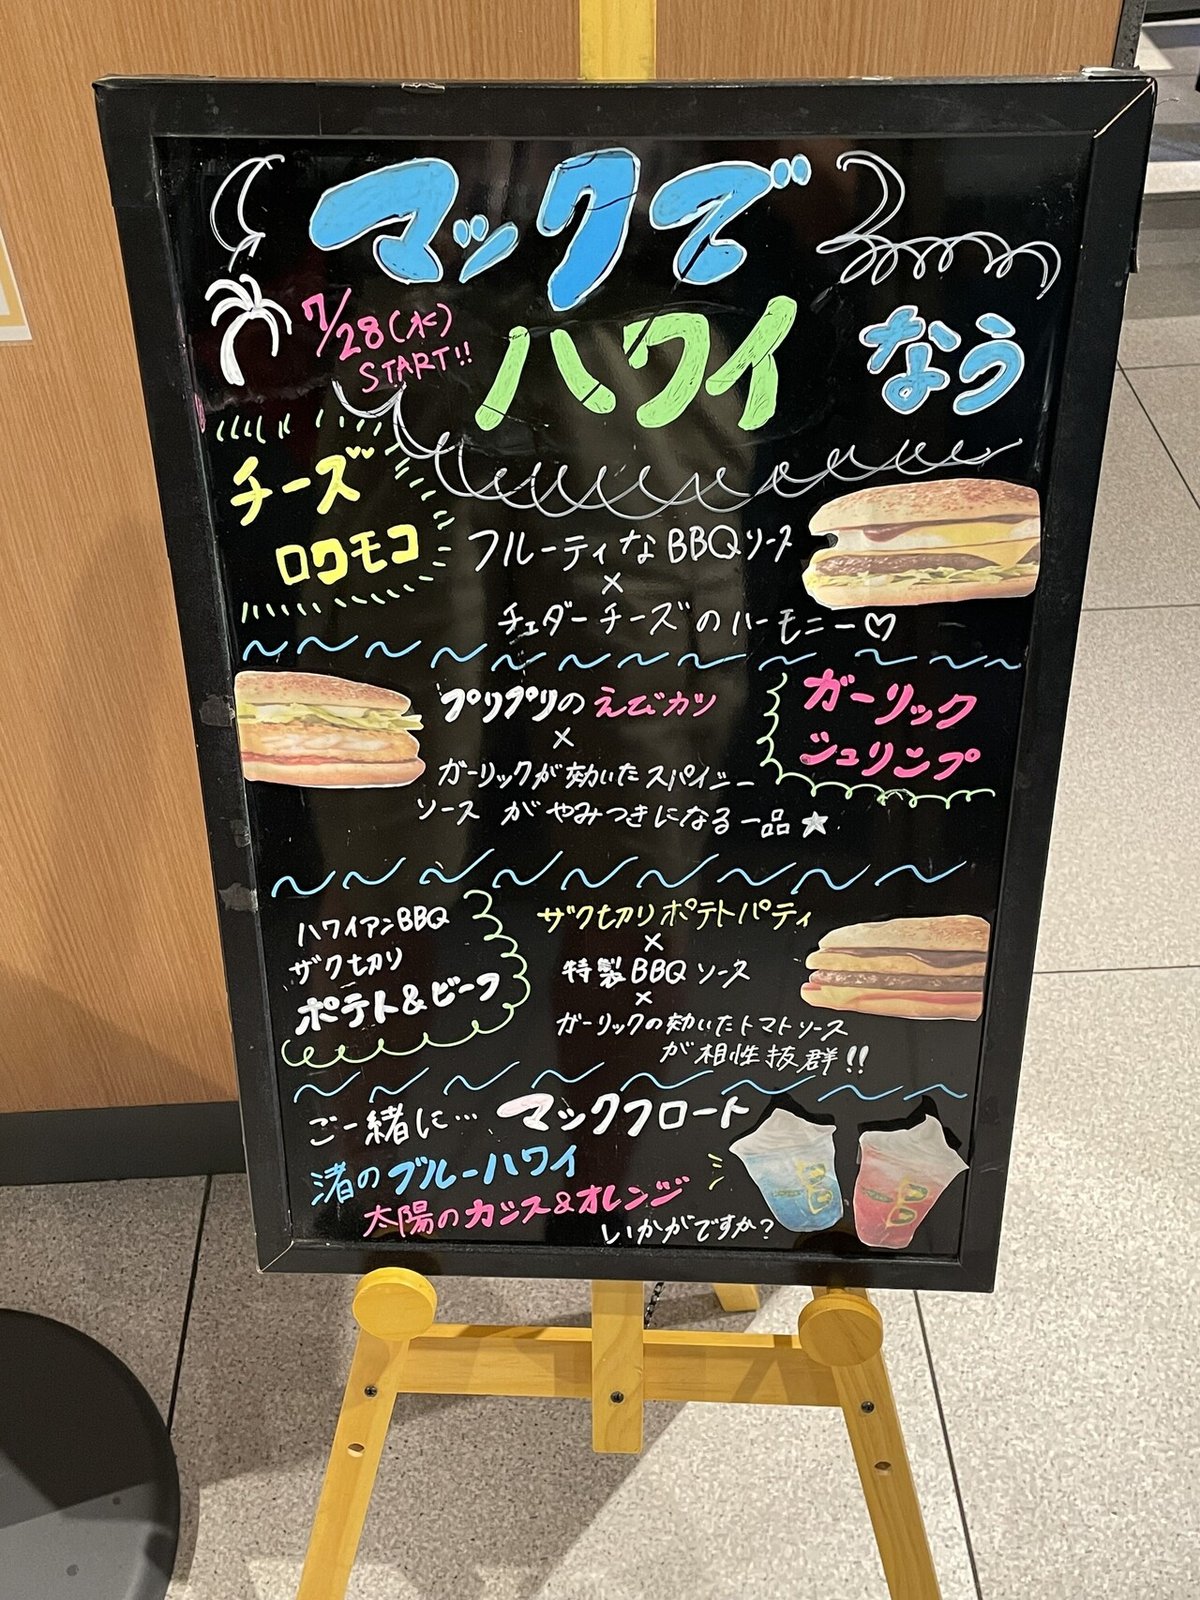 マックで
ハワイ
なう
7/28(水)
START!!
チーズ
ロコモコ
フルーティなBBQソース
×
チェダーチーズのハーモニー♡
プリプリのえびカツ
×
ガーリックが効いたスパイシー
ソースがやみつきになる一品★
ガーリック
シュリンプ
ハワイアンBBQ
ザク切り
ポテト&ビーフ
ザク切りポテトパティ
×
特製BBQソース
×
ガーリックの効いたトマトソース
が相性抜群!!
ご一緒に…マックフロート
渚のブルーハワイ
太陽のカシス&オレンジ
いかがですか?